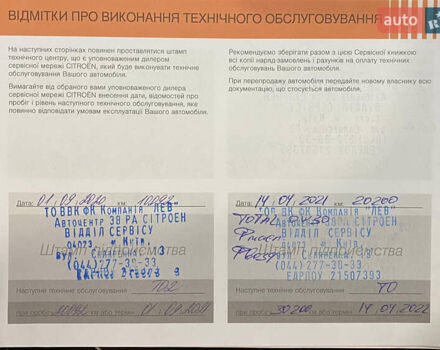 ВІДМІТКИ ПРО ВИКОНАННЯ ТЕХНІЧНОГО ОБСЛУГОВУВАННЯ
auto
На наступних сторінках повинен проставлятися штамп
технічного центру, що є уповноваженим дилером
сервісної мережі CITROËN, який буде виконувати технічне
обслуговування Вашого автомобіля.
Вимагайте від обраного вами уповноваженого дилера
сервісної мережі CITROËN внесення дати, відомостей про
пробіг і рівень наступного технічного обслуговування, яке
повинно відповідати умовам експлуатації Вашого автомобіля.
Рекомендуємо зберігати разом з цією Сервісної книжкою
всі копії наряд-замовлень і рахунків на оплату технічних
обслуговувань Вашого автомобіля.
При перепродажу автомобіля передайте новому власнику всю
документацію, що стосується автомобіля.
Дата: 01.09.2020 км: 10092
ТОВ ВК ФК Компанія "ЛЕВ"
Автоцентр ЗВ РА СІТРОЕН
ВІДДІЛ СЕРВІСУ
04073, м. Київ,
Штамп підприємства
(044)277-30-33
Наступне технічне обслуговування ТО2
при пробігу км або термін 01.09.2021
Дата: 14 04 2021 км: 20200
ТОВ ВК ФК Компанія "ЛЕВ"
TOTAL 0W30
Автоцентр ЗВ РА СІТРОЕН
ВІДДІЛ СЕРВІСУ
04073, м. Київ,
Штамп підприємства
(044)277-30-33
ЄДРПОУ 21507393
Наступне технічне обслуговування ТО
при пробігу 30200 км або термін 14 04 2022